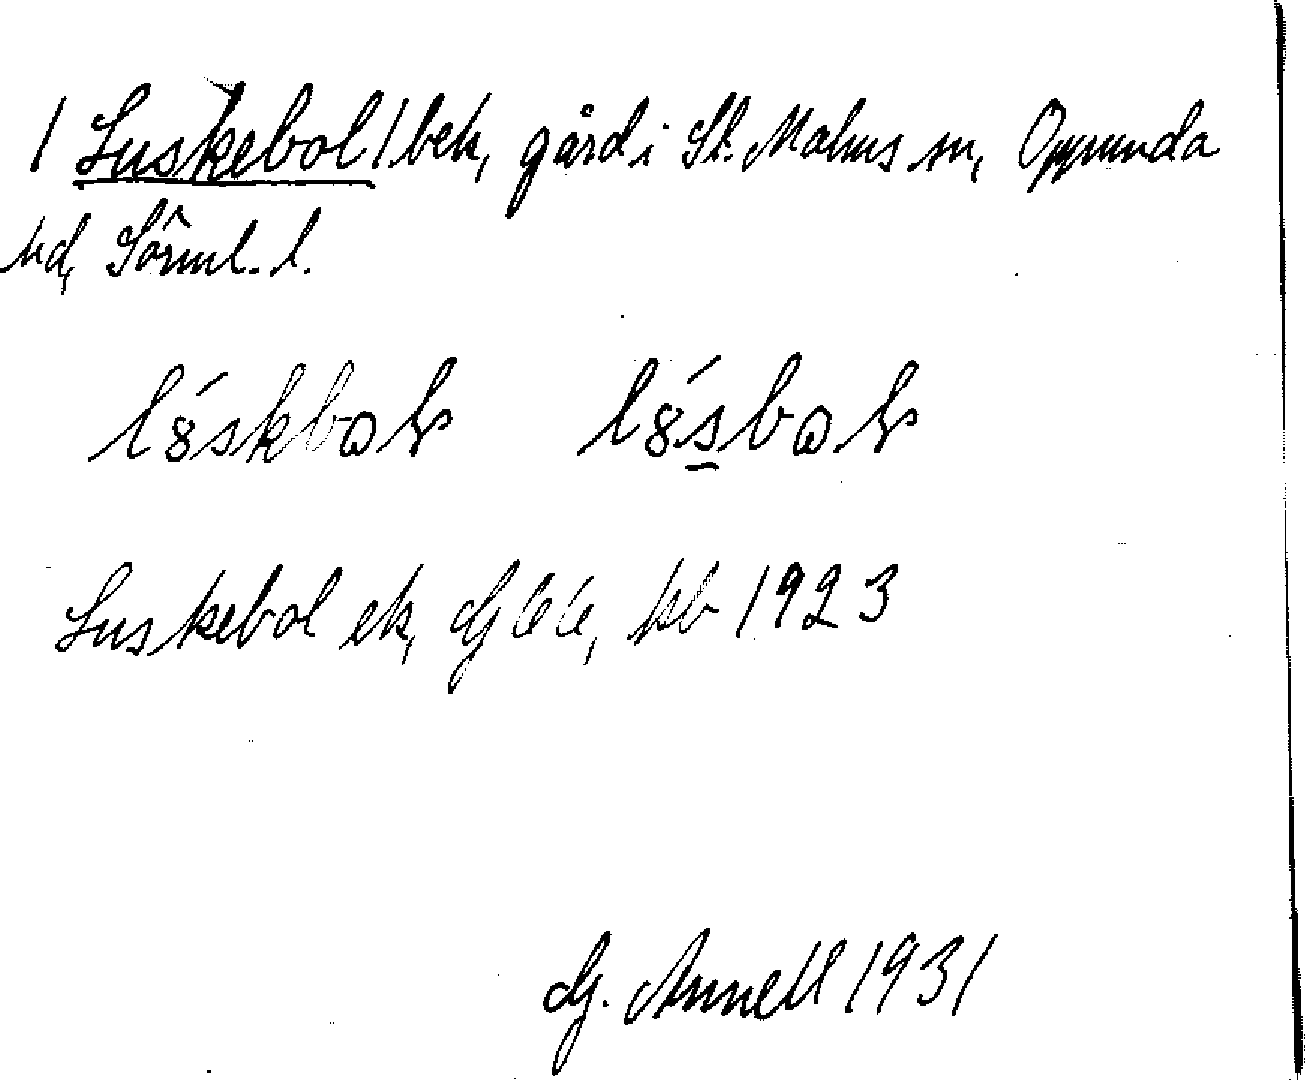 / Luskebol / bek, gård i St. Malms sn, Oppunda
hd, Sörml. l.
l8́skbaɭ l8́sbaɭ
Luskebol ek, GEK, kb 1923
G. Annell 1931